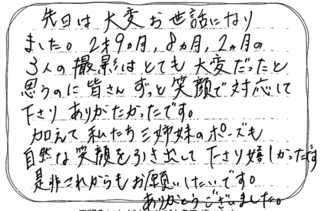 先日は大変お世話になり
ました。2才9ヵ月,8ヵ月,2ヵ月の
3人の撮影はとても大変だったと
思うのに皆さんずっと笑顔で対応して
下さりありがたかったです。
加えて私たち三姉妹のポーズも
自然な笑顔を引き出して下さり嬉しかったです
是非これからもお願いしたいです。
ありがとうございました。